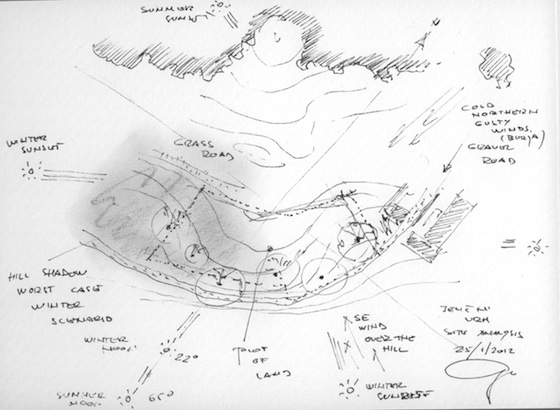 SUMMER
SUNSET
COLD
NORTHERN
GUSTY
WINDS,
(BURJA)
GRAVEL
ROAD
WINTER
SUNSET
GRASS
ROAD
HILL SHADOW
WORST CASE
WINTER
SCENARIO
WINTER
NOON
22°
SUMMER
NOON
65°
PLOT
OF
LAND
SE
WIND
OVER THE
HILL
WINTER
SUNRISE
VRH
SITE ANALYSIS
25/1/2012